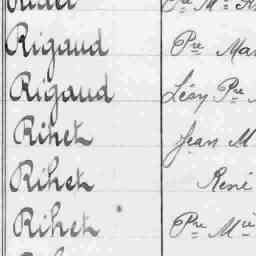 Rigaud Pre Mar
Rigaud Léon Pre
Rihet Jean M
Rihet René
Rihet Pre Mie